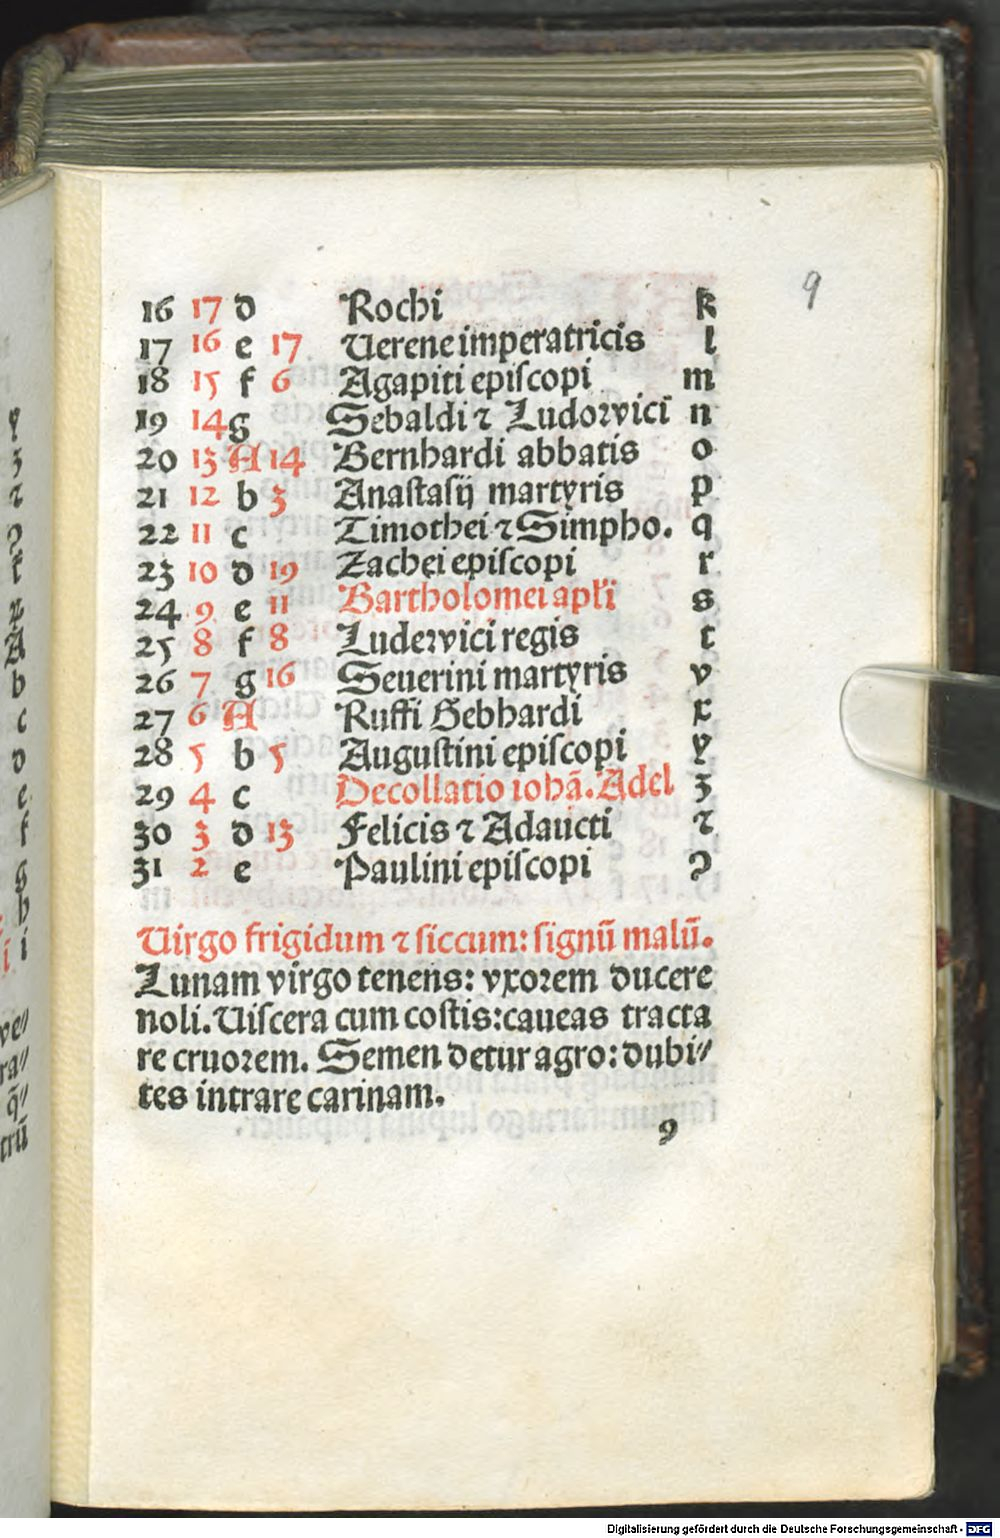 9
16 17 d Rochi k
17 16 e 17 Uerene imperatricis l
18 15 f 6 Agapiti episcopi m
19 14 g Sebaldi ⁊ Ludowici n
20 13 A 14 Bernhardi abbatis o
21 12 b 3 Anastasij martyris p
22 11 c Timothei ⁊ Simpho. q
23 10 d 19 Zachei episcopi r
24 9 e 11 Bartholomei apłi s
25 8 f 8 Ludewici regis t
26 7 g 16 Seuerini martyris v
27 6 A Ruffi Gebhardi x
28 5 b 5 Augustini episcopi y
29 4 c Decollatio iohā. Adel z
30 3 d 13 Felicis ⁊ Adaucti ⁊
31 2 e Paulini episcopi ꝯ
Uirgo frigidum ⁊ siccum: signū malū.
Lunam virgo tenens: vxorem ducere
noli. Uiscera cum costis: caueas tracta
re cruorem. Semen detur agro: dubi⸗
tes intrare carinam.
9
Digitalisierung gefördert durch die Deutsche Forschungsgemeinschaft - DFG